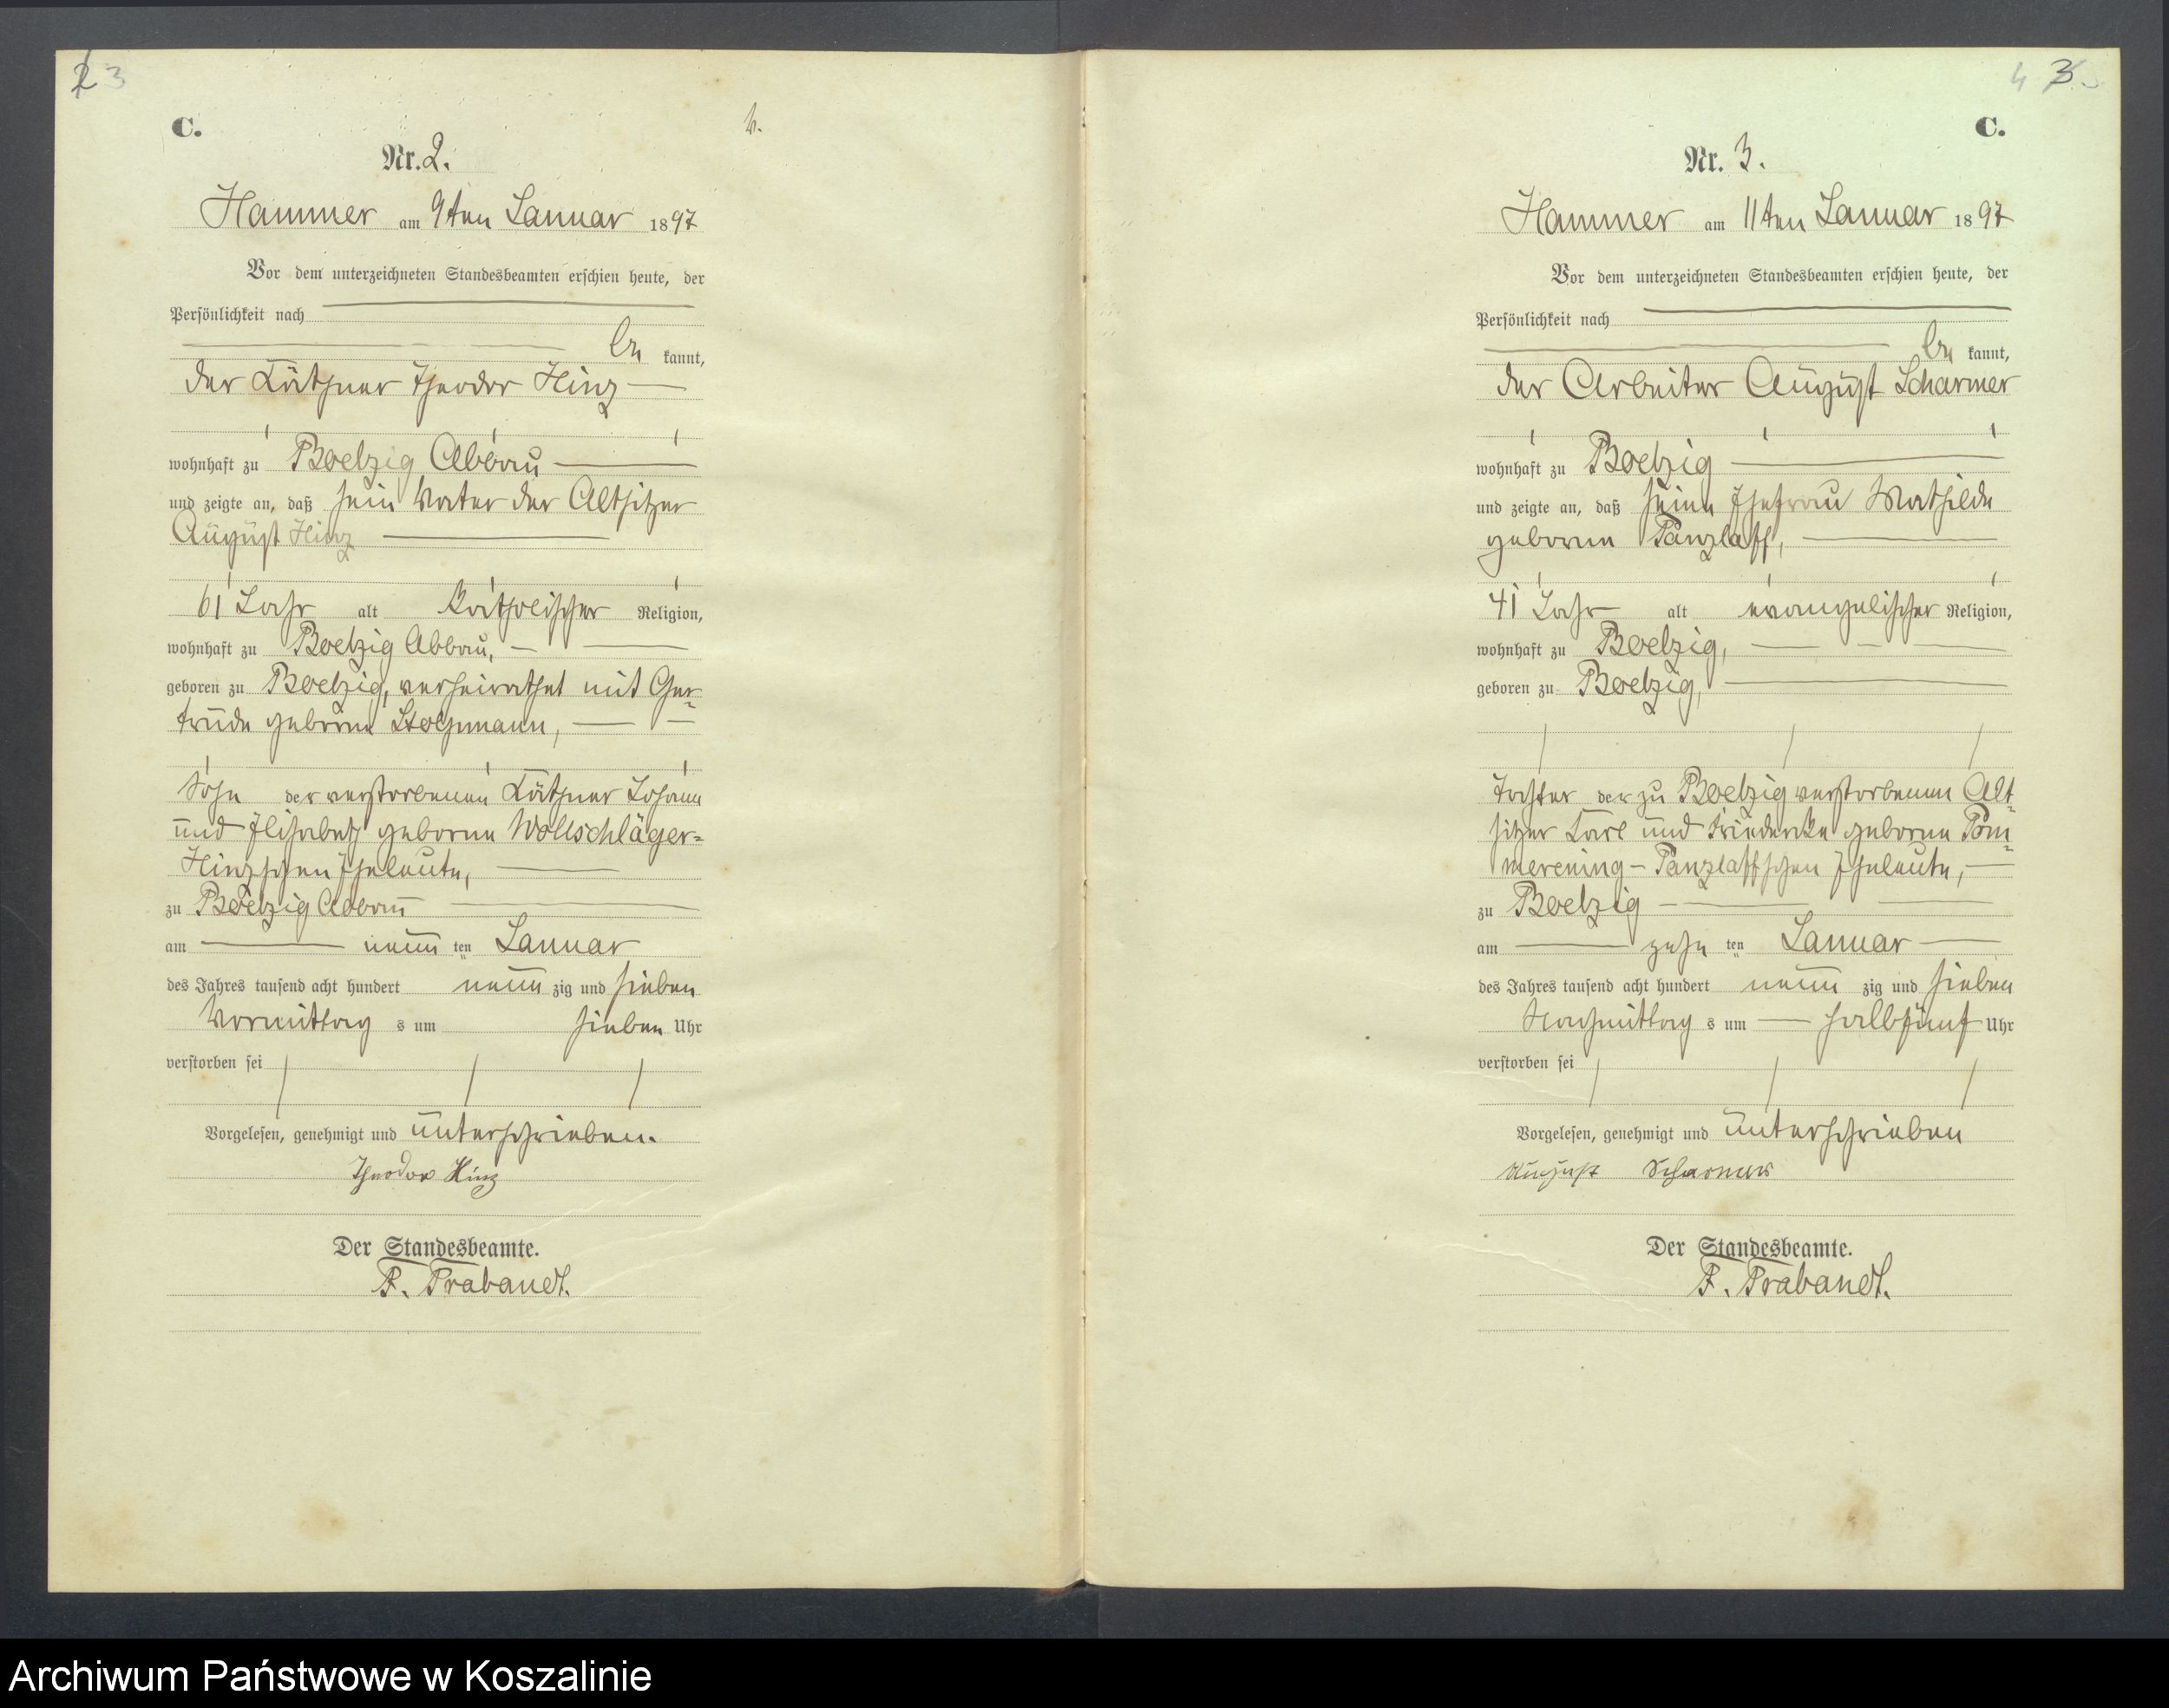 2 3
C.
b.
Nr. 2.
Hammer am 9ten Januar 1897
Vor dem unterzeichneten Standesbeamten erschien heute, der
Persönlichkeit nach
be kannt,
der Käthner Theodor Hinz
wohnhaft zu Boelzig Abbau
und zeigte an, daß sein Vater der Altsitzer
August Hinz
61 Jahr alt katholischer Religion,
wohnhaft zu Boelzig Abbau,
geboren zu Boelzig, verheirathet mit Ger-
trude geborne Stolzmann,
Sohn der verstorbenen Käthner Johann
und Elisabeth geborne Wollschläger-
Hinzschen Eheleute,
zu Boelzig Abbau
am neun ten Januar
des Jahres tausend acht hundert neun zig und sieben
Vormittag s um sieben Uhr
verstorben sei
Vorgelesen, genehmigt und unterschrieben.
Theodor Hinz
Der Standesbeamte.
F. Prabandt.
4 3.
C.
Nr. 3.
Hammer am 11ten Januar 1897
Vor dem unterzeichneten Standesbeamten erschien heute, der
Persönlichkeit nach
be kannt,
der Arbeiter August Scharmer
wohnhaft zu Boelzig
und zeigte an, daß seine Ehefrau Mathilde
geborne Panzlaff,
41 Jahr alt evangelischer Religion,
wohnhaft zu Boelzig,
geboren zu Boelzig,
Tochter der zu Boelzig verstorbenen Alt-
sitzer Karl und Friederike geborne Pom-
merening - Panzlaffschen Eheleute,
zu Boelzig
am zehn ten Januar
des Jahres tausend acht hundert neun zig und sieben
Nachmittag s um halbfünf Uhr
verstorben sei
Vorgelesen, genehmigt und unterschrieben
August Scharmer
Der Standesbeamte.
F. Prabandt.
Archiwum Państwowe w Koszalinie